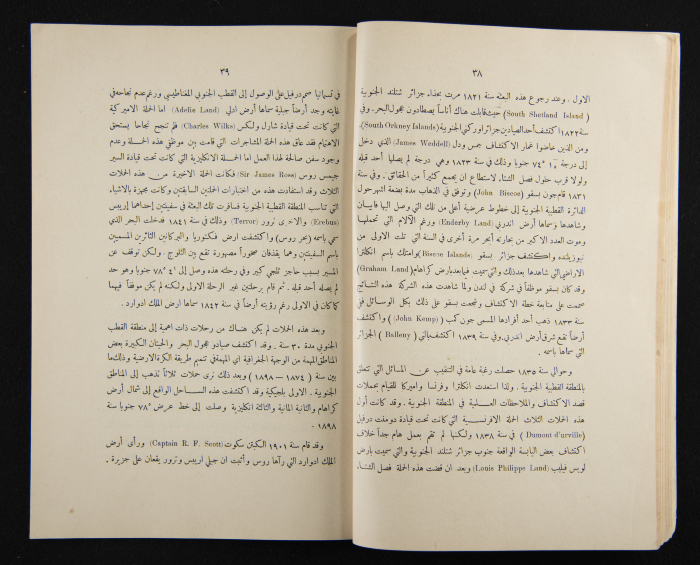 ٣٨
الاول . وعند رجوع هذه البعثة سنة ١٨٢١ مرت بحذاء جزائر شتلند الجنوبية
( South Shetland Island ) حيث قابلت هناك أناساً يصطادون عجول البحر . وفي
سنة ١٨٢٢ اكتشف أحد الصيادين جزائر اوركني الجنوبية (South Orkney Islands).
ومن الذين خاضوا غمار الاكتشاف جمس ودل (James Weddell) الذي دخل
إلى درجة ١٠ ٧٤° جنوبا وذلك في سنة ١٨٢٣ وهي درجة لم يصلها أحد قبله
ولولا قرب حلول فصل الشتاء لاستطاع ان يجمع كثيراً من الحقائق . وفي سنة
١٨٣١ قام جون بسقو (John Biscoe) وتوفق في الذهاب مدة بضعة اشهر حول
الدائرة القطبية الجنوبية إلى خطوط عرضية أعلى من تلك التي وصل اليها
وشاهدها وسماها أرض اندربي (Enderby Land) ورغم الآلام التي تحملها
وموت العدد الاكبر من بحارته أبحر مرة أخرى في السنة التي تلت الاولى من
نيوزيلنده واكتشف جزائر بسقو (Biscoe Islands) وامتلك باسم انكلترا
الاراضي التي شاهدها بعد ذلك والتي سميت فيما بعد بارض كراهام (Graham Land)
وقد كان بسقو موظفاً في شركة في لندن ولما شاهدت هذه الشركة هذه النتائج
صممت على متابعة خطة الاكتشاف وشجعت بسقو على ذلك بكل الوسائل ففي
سنة ١٨٣٣ ذهب أحد أفرادها المسمى جون كمب ( John Kemp ) واكتشف
أرضاً تقع شرق أرض اندربي . وفي سنة ١٨٣٩ اكتشف بالني ( Balleny ) الجزائر
التي سماها باسمه .
وحوالي سنة ١٨٣٥ حصلت رغبة عامة في التنقيب عن المسائل التي تتعلق
بالمنطقة القطبية الجنوبية . ولذا استعدت انكلترا وفرنسا واميركا للقيام بحملات
قصد الاكتشاف والملاحظات العلمية في المنطقة الجنوبية . وقد كانت أول
هذه الحملات الثلاث الحملة الافرنسية التي كانت تحت قيادة دومنت درفيل
( Dumont d'urville ) في سنة ١٨٣٨ ولكنها لم تقم بعمل هام جداً خلاف
اكتشاف بعض اليابسة الواقعة جنوب جزائر شتلند الجنوبية والتي سميت بارض
لويس فيليب (Louis Philippe Land) وبعد ان قضت هذه الحملة فصل الشتاء
٣٩
في تسمانيا صمم درفيل على الوصول إلى القطب الجنوبي المغناطيسي ورغم عدم نجاحه في
غايته وجد أرضاً جبلية سماها أرض ادلي (Adelie Land) اما الحملة الاميركية
التي كانت تحت قيادة شارل ولكس (Charles Wilks) فلم تنجح نجاحا يستحق
الاهتمام فقد عاق هذه الحملة المشاجرات التي قامت بين موظفي هذه الحملة وعدم
وجود سفن صالحة لهذا العمل اما الحملة الانكليزية التي كانت تحت قيادة السير
جيمس روس (Sir James Ross) فكانت الحملة الاخيرة من هذه الحملات
الثلاث وقد استفادت هذه من اختبارات الحملتين السابقتين وكانت مجهزة بالاشياء
التي تناسب المنطقة القطبية الجنوبية فسافرت تلك البعثة في سفينتين إحداهما إربس
(Erebus) والاخرى ترور (Terror) وذلك في سنة ١٨٤١ فدخلت البحر الذي
سمي باسمه (بحر روس) واكتشفت ارض فكتوريا والبركانين الثائرين المسميين
باسم السفينتين وهما يقذفان صخوراً مصهورة تقع بين الثلوج . ولكن توقف عن
المسير بسبب حاجز ثلجي كبير وفي رحلته هذه وصل إلى ٤ ٧٨° جنوبا وهو حد
لم يصله أحد قبله . ثم قام برحلتين غير الرحلة الاولى ولكنه لم يكن موفقاً فيهما
كما كان في الاولى رغم رؤيته أرضاً في سنة ١٨٤٢ سماها ارض الملك ادوارد .
وبعد هذه الحملات لم يكن هنالك من رحلات ذات اهمية إلى منطقة القطب
الجنوبي مدة ٣٠ سنة . وقد اكتشف صيادو عجول البحر والحيتان الكبيرة بعض
المناطق المهمة من الوجهة الجغرافية
بين سنة ( ١٨٧٤ — ١٨٩٨ ) وبعد ذلك نرى حملات ثلاثاً تذهب إلى المناطق
الجنوبية . الاولى بلجيكية وقد اكتشفت هذه الساحل الواقع إلى شمال أرض
كراهام والثانية المانية والثالثة انكليزية وصلت إلى خط عرض ٧٨° جنوبا سنة
١٨٩٨ .
وقد قام سنة ١٩٠١ الكبتن سكوت (Captain R. F. Scott) ورأى أرض
الملك ادوارد التي رآها روس وأثبت ان جبلي اربيس وترور يقعان على جزيرة .